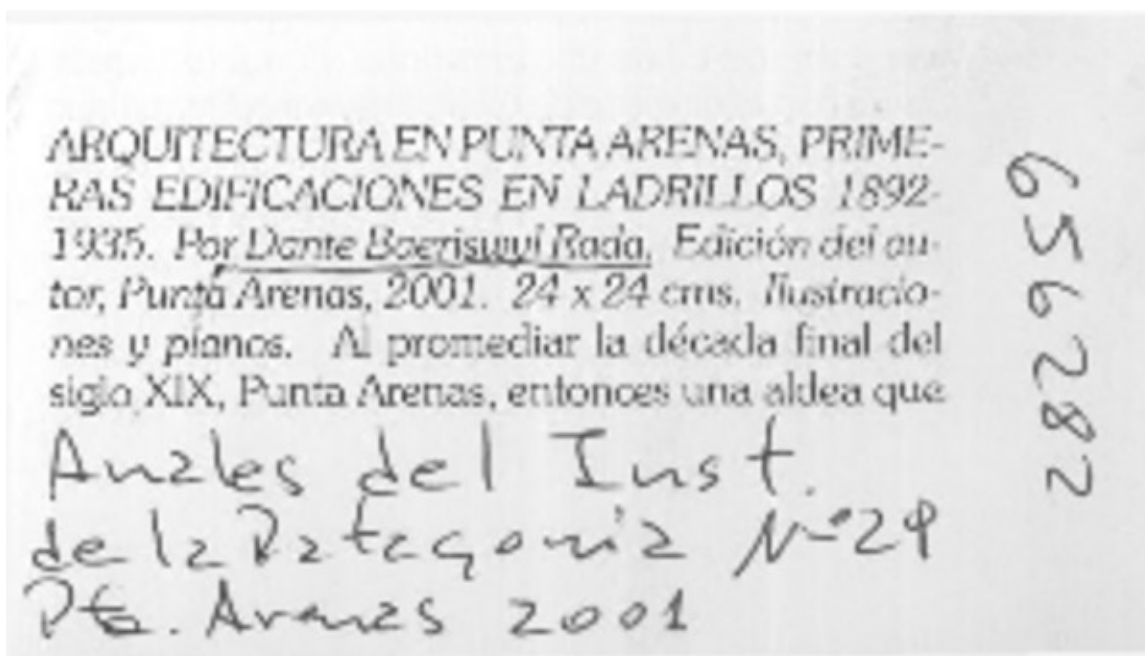 ARQUITECTURA EN PUNTA ARENAS, PRIME-
RAS EDIFICACIONES EN LADRILLOS 1892-
1935. Por Dante Baeriswyl Rada. Edición del au-
tor, Punta Arenas, 2001. 24 x 24 cms. Ilustracio-
nes y planos. Al promediar la década final del
siglo XIX, Punta Arenas, entonces una aldea que
Anales del Inst.
de la Patagonia Nº29
Pta. Arenas 2001
656282